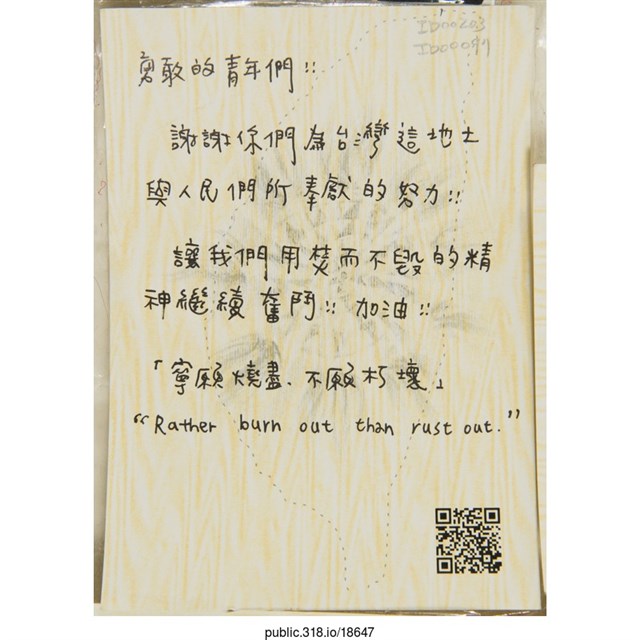 ID00203
勇敢的青年們!!
謝謝你們為台灣這地土
與人民們所奉獻的努力!!
讓我們用焚而不毀的精
神繼續奮鬥!! 加油!!
「寧願燒盡、不願朽壞」
“Rather burn out than rust out.”
public.318.io/18647